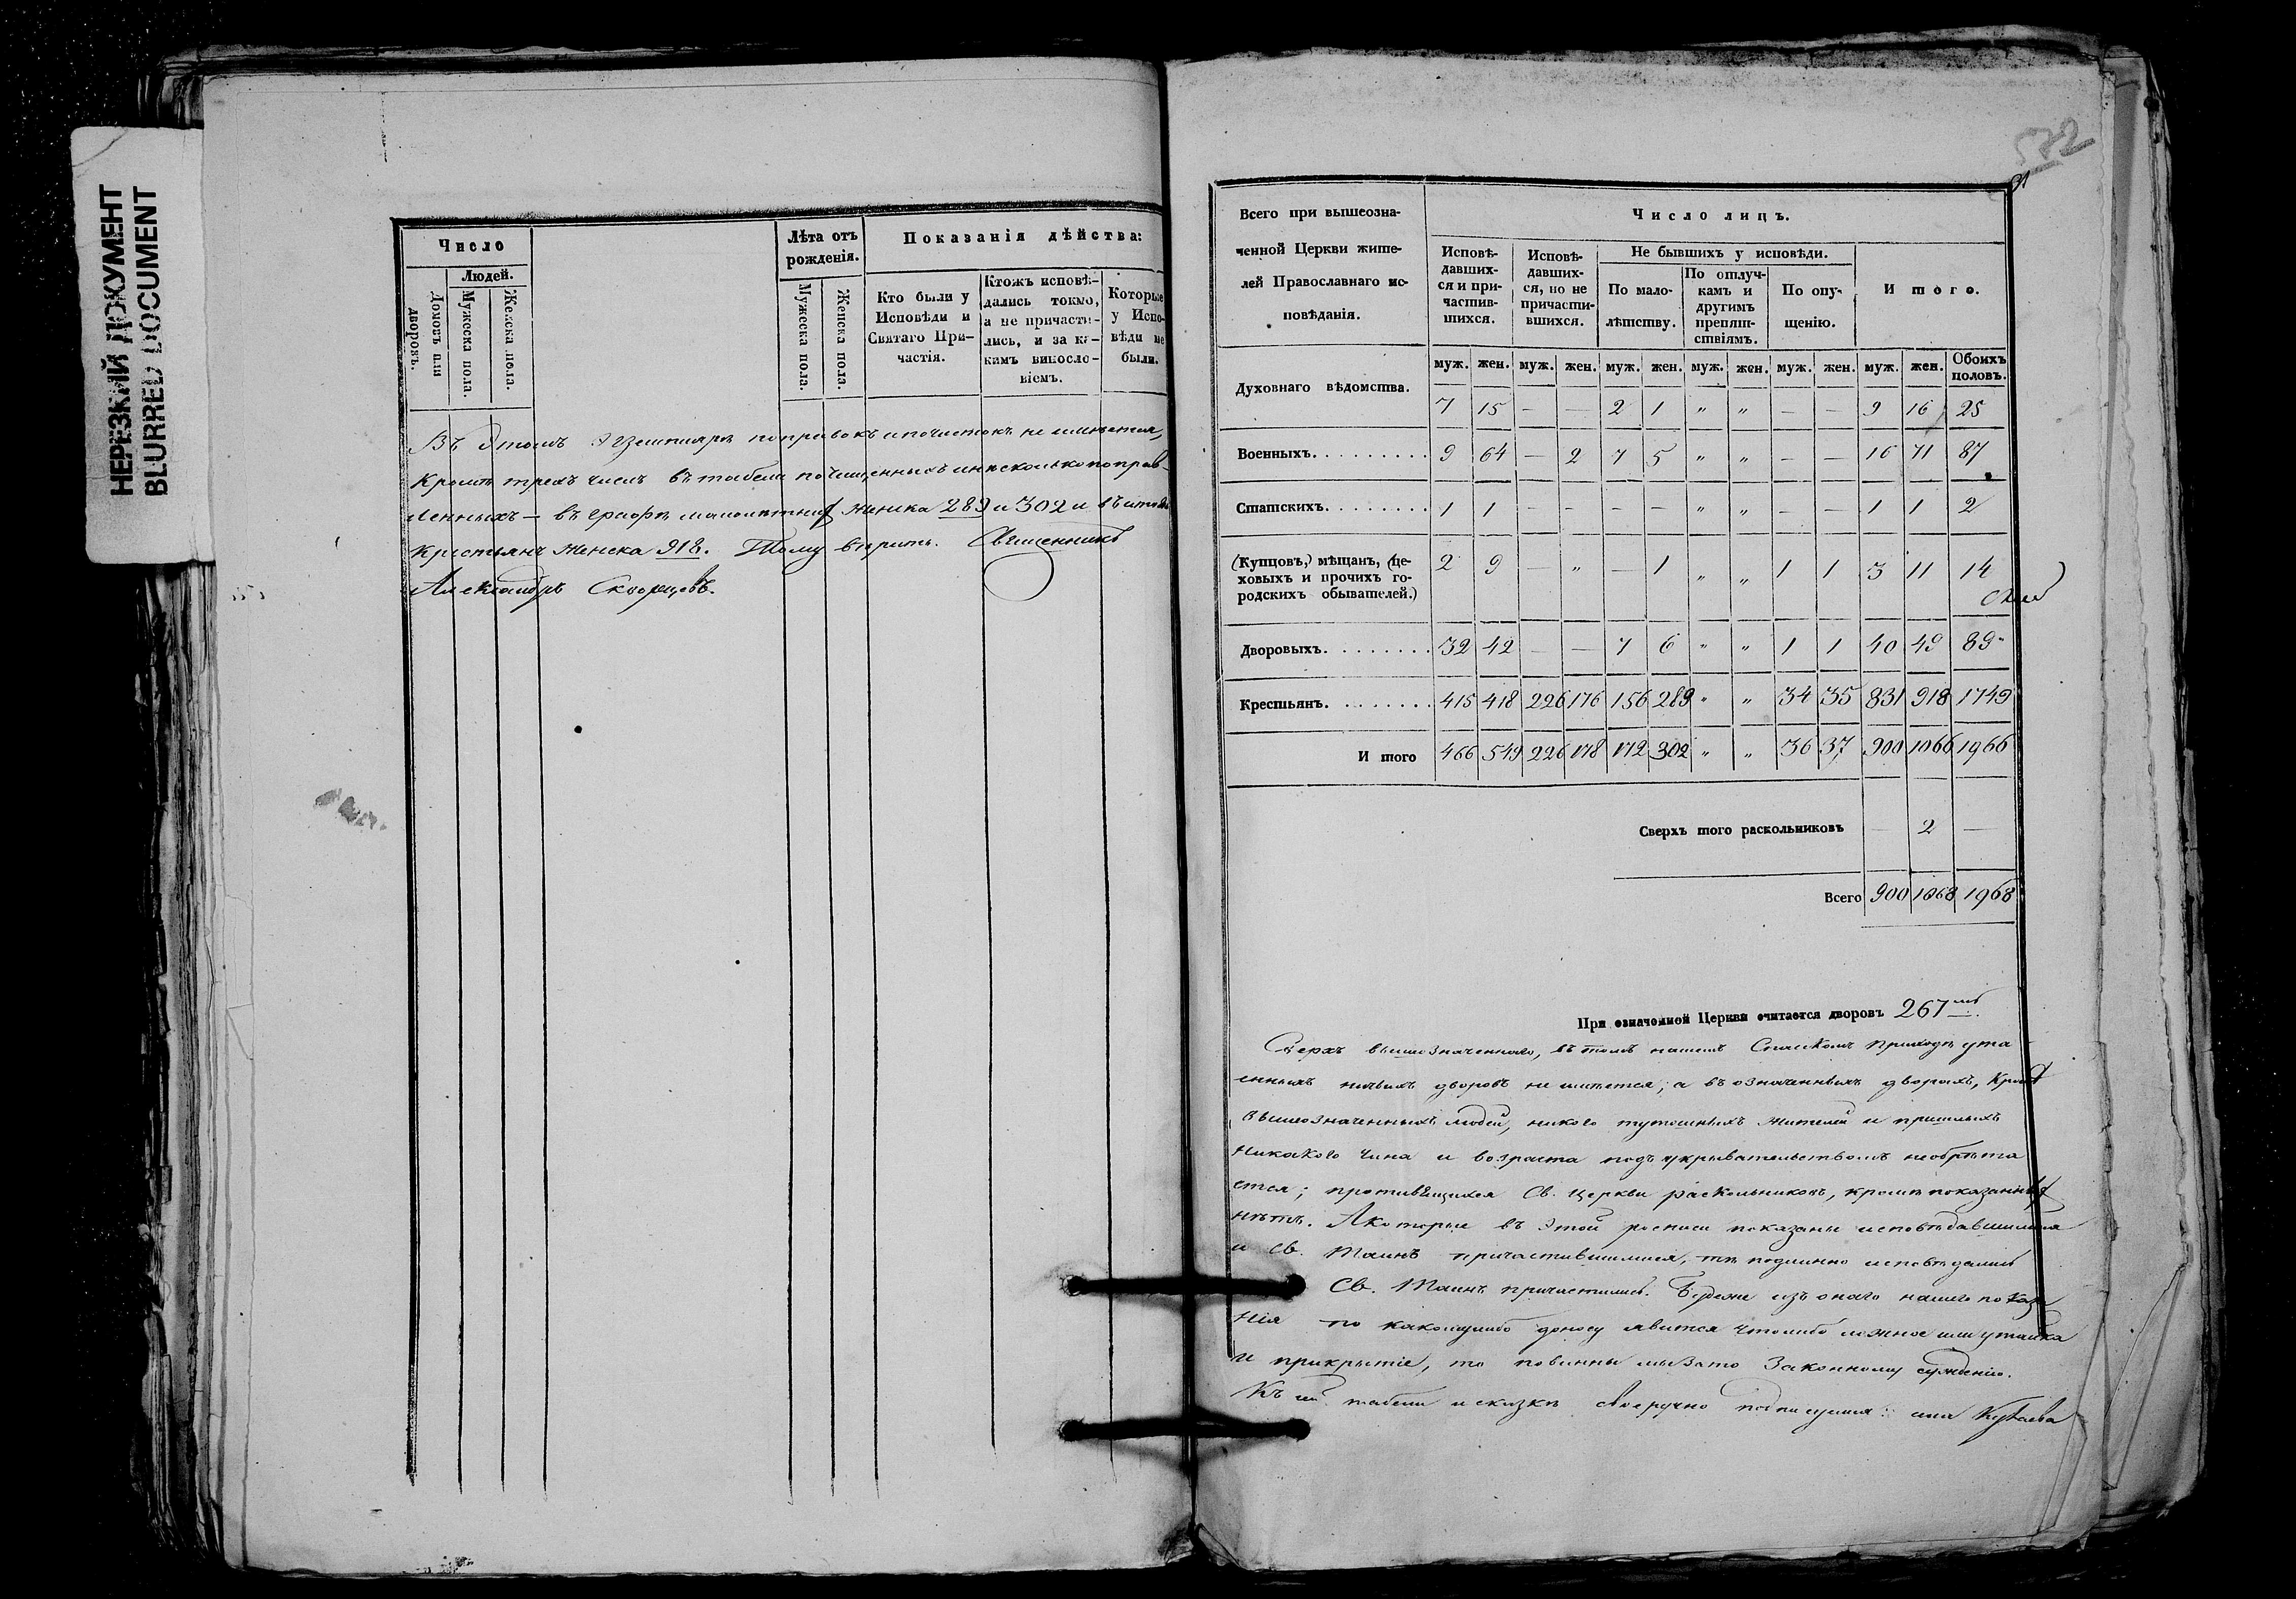 НЕРЕЗКИЙ ДОКУМЕНТ
BLURRED DOCUMENT
Число
Людей.
Домовъ или дворовъ.
Мужеска пола.
Женска пола.
Лѣта отъ рожденія.
Мужеска пола.
Женска пола.
Показанія дѣйства:
Кто были у Исповѣди и Святаго Причастія.
Ктожъ исповѣдались токмо, а не причастились, и за какимъ винословіемъ.
Которые у Исповѣди не были.
Въ этомъ экземплярѣ поправокъ и почистокъ не имѣется,
кромѣ трехъ числъ въ табели почищенныхъ и нѣсколько поправ-
ленныхъ – въ графѣ малолѣтних женска 289 и 302 и въ итогѣ
крестьянъ женска 918. Тому вѣрить. Священникъ
Александръ Скворцовъ.
572
Всего при вышеозна-
ченной Церкви жите-
лей Православнаго ис-
повѣданія.
Число лицъ.
Исповѣ-
давших-
ся и при-
частив-
шихся.
Исповѣ-
давших-
ся, но не
причасти-
вшихся.
Не бывшихъ у исповѣди.
По мало-
лѣтству.
По отлуч-
камъ и
другимъ
препят-
ствіямъ.
По опу-
щенію.
Итого.
муж. жен. муж. жен. муж. жен. муж. жен. муж. жен. муж. жен. Обоихъ половъ.
Духовнаго вѣдомства. 7 15 — — 2 1 " " — — 9 16 25
Военныхъ. 9 64 — 2 7 5 " " — — 16 71 87
Статскихъ. 1 1 — — — — " " — — 1 1 2
(Купцовъ,) мѣщанъ, (це-
ховыхъ и прочихъ го-
родскихъ обывателей.) 2 9 — " — 1 " " 1 1 3 11 14
Дворовыхъ. 32 42 — — 7 6 " " 1 1 40 49 89
Крестьянъ. 415 418 226 176 156 289 " " 34 35 831 918 1749
Итого 466 549 226 178 172 302 " " 36 37 900 1066 1966
Сверхъ того раскольниковъ — 2 —
Всего 900 1068 1968
При означенной Церкви считается дворовъ 267
Сверхъ вышеозначеннаго, въ томъ нашемъ Спаскомъ приходѣ ута-
енныхъ ничьихъ дворовъ не имѣется; а въ означенныхъ дворахъ, кромѣ
вышеозначенныхъ людей, никого тутошныхъ жителей и пришлыхъ
никакого чина и возраста подъ укрывательствомъ необрѣта
ется; противящихся Св. Церкви раскольниковъ, кромѣ показанных
нѣтъ. А которые въ этой росписи показаны исповѣдавшимися
и Св. Таинъ причастившимися, тѣ подлинно исповѣдались
Св. Таинъ причастились. Буде же изъ онаго нашего показа
нія по какомулибо доносу явится чтолибо ложное или утайка
и прикрытіе, то повинны мы зато законному сужденію.
Къ сей табели и сказкѣ своеручно подписуемся: села